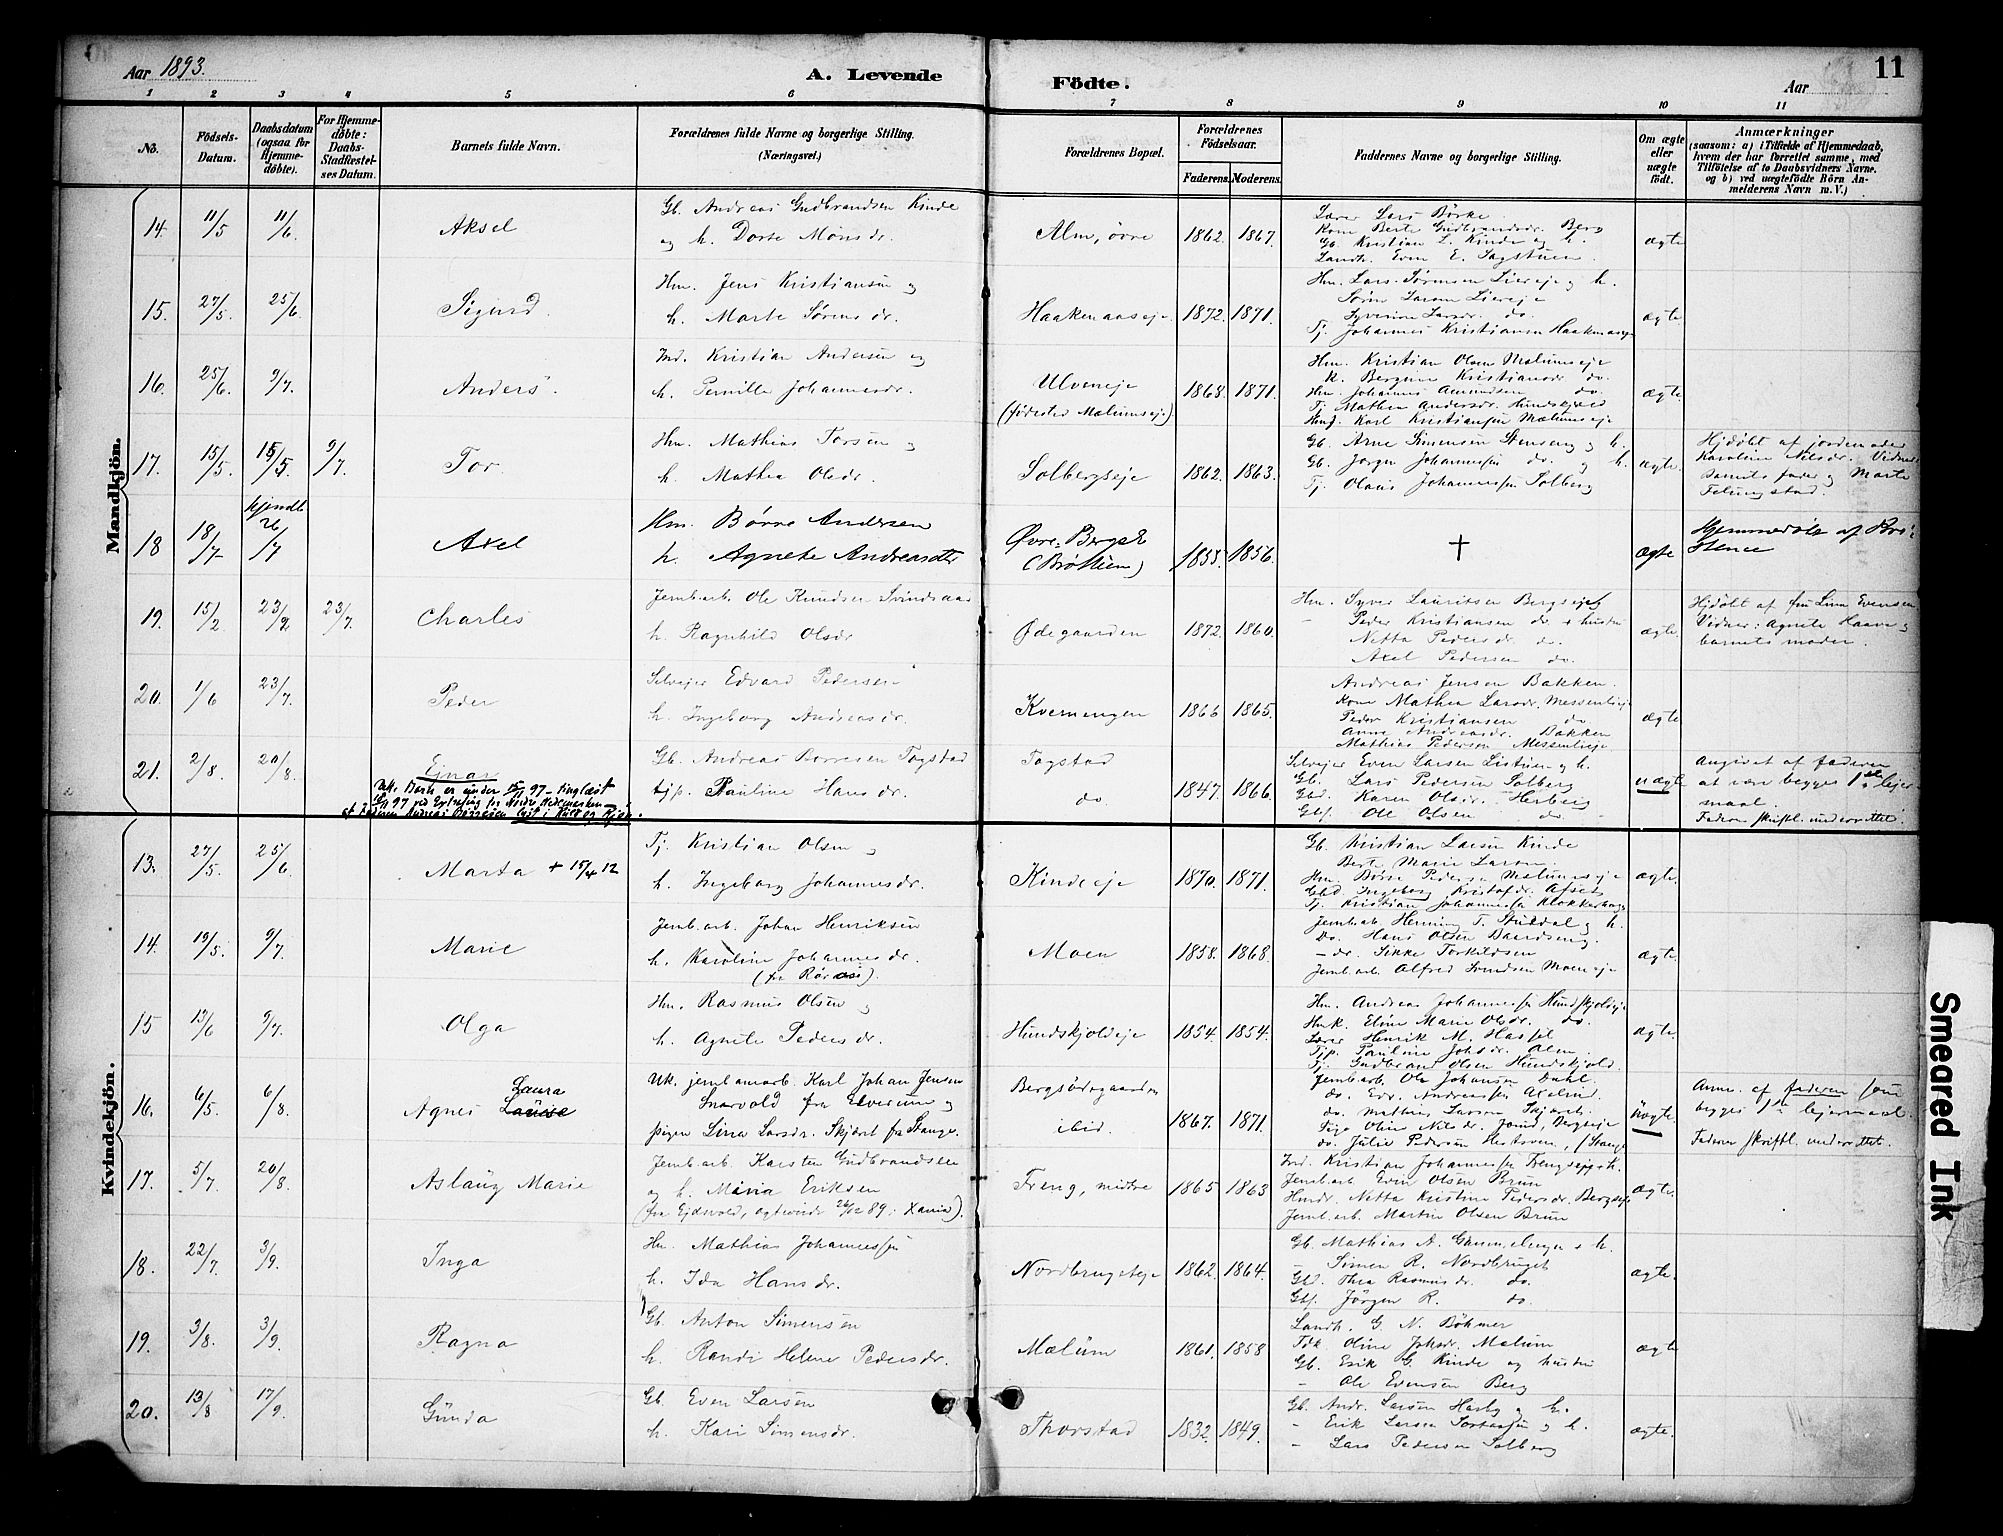 Aar 1893.
A. Levende
Födte.
Aar
11
1 2 3 4 5 6 7 8 9 10 11
No.
Födsels-Datum.
Daabsdatum (ogsaa for Hjemmedöbte).
For Hjemmedöbte: Daabs-Stadfæstelses Datum.
Barnets fulde Navn.
Forældrenes fulde Navne og borgerlige Stilling.
(Næringsvei.)
Forældrenes Bopæl.
Forældrenes Födselsaar.
Faderens. Moderens.
Faddernes Navne og borgerlige Stilling.
Om ægte eller uægte födt.
Anmærkninger
(saasom: a) i Tilfælde af Hjemmedaab, hvem der har forrettet samme, med Tilföielse af to Daabsvidners Navne. og b) ved uægtefödte Börn Anmelderens Navn m. V.)
Mandkjön.
14. 11/5 11/6 Aksel
Gb. Andreas Gudbrandsen Kinde
og h. Dorte Mønsdr.
Alm, øvre 1862. 1867.
Lærer Lars Børke.
Kone Berte Gudbrandsdr. Berg
Gb. Kristian L. Kinde og h.
Landh. Even E. Sagstuen
ægte
15. 27/5. 25/6 Sigurd.
Hm. Jens Kristiansen og
h. Marte Sørensdr.
Haakenaaseje. 1872. 1871.
Hm. Lars Sørensen Liereje og h.
Søren Larsen Liereje
Tj. Johannes Kristiansen
ægte
16. 25/6. 9/7. Anders.
Ind. Kristian Andersen og
h. Pernille Johannesdr.
Ulveneje
(fødested Mælumseje)
1868. 1871.
Hm. Kristian Olsen Mælumseje
K. Bergine Kristiansdr. do.
Hm. Johannes Amundsen do.
Tj. Mathea Andersdr. Hundskjold
Karl Kristiansen Mælumseje
ægte
17. 15/5. 15/5. 9/7. Tor.
Hm. Mathias Torsen og
h. Mathea Olsdr.
Solbergseje 1862. 1863.
Gb. Arne Simensen Stenseng og h.
Gb. Jørgen Johannessen do. og h.
Tj. Olaus Johannessen Solberg
ægte.
Hjdøbt af jordemoder
Karoline Nilsdr. Vidner
barnets fader og Marte
18 18/7 hjemdt. 26/7 Axel
Hm. Børre Andersen
h. Agnete Andreasdtr
Øvre-Bergse
(Brøttum)
1855. 1856.
+
ægte
Hjemmedøbt af
19. 15/2 23/2 23/7. Charles
Jernb.arb. Ole Knudsen
h. Ragnhild Olsdr
Ødegaarden 1872. 1860.
Hm. Syver Lauritsen Bergseje
- Peder Kristiansen do. & hustru
Netta Pedersdr. do.
Axel Pedersen do.
ægte.
Hjdøbt af fru Lina Evensen
Vidner: Agnete Haave og
barnets moder.
20. 1/6 23/7. Peder
Selvejer Edvard Pedersen
h. Ingeborg Andreasdr.
Kverneengen 1866 1865.
Andreas Jensen Bakken.
Kone Mathea Larsdr. Messenlieje
Peder Kristiansen do.
Anne Andreasdr. Bakken
Mathias Pedersen Messenlieje
ægte
21. 2/8. 20/8. Ejnar
Gb. Andreas Borresen Togstad
tjp. Pauline Hansdr.
Togstad
do.
1847. 1866.
Selvejer Even Larsen Listuen og h.
Gb. Lars Pedersen Solberg
Gbd. Karen Olsdr. Herberg
Gbs. Ole Olsen do.
uægte
Angivet af faderen
at være begges 1ste lejermaal.
Faderen skriftl. underrettet.
Kvindekjön.
13. 27/5. 25/6 Marta + 15/4 12
Tj. Kristian Olsen og
h. Ingeborg Johannesdr.
Kindeeje 1870. 1871.
Gb. Kristian Larsen Kinde
Berte Marie Larsen.
Hm. Børre Pedersen Mælumseje
Gbd. Ingeborg Kristofdr.
Tj. Kristian Johannessen Klokkerhage
ægte.
14. 19/5. 9/7. Marie
Jernb.arb. Johan Henriksen
h. Karoline Johannesdr.
(fra Røraas).
Moen 1858. 1868.
Jernb.arb. Henning T. Stuedal og h.
Do. Hans Olsen Baardseng.
- do. Sikke Torkildsen
Jernb.arb. Alfred Svendsen Moeneje
ægte.
15 13/6 9/7. Olga
Hm. Rasmus Olsen og
h. Agnete Pedersdr.
Hundskjoldeje 1854. 1854.
Hm. Andreas Johannessen Hundskjoldeje
Hmk. Eline Marie Olsdr. do.
Lærer Henrik M. Hassel
Tjp. Pauline Johsdr. Alm
Tj. Gudbrand Olsen Hundskjold.
ægte.
16. 6/5. 6/8. Agnes Laura Louise
Uk. jernbanearb. Karl Johan Jensen
Snarvold fra Elverum og
pigen Lina Larsdr. Skjæret fra Stange.
Bergsødegaarden
ibid.
1867. 1871.
Jernb.arb. Ole Johansen Dahl.
do. Edv. Andreassen
do. Mathias Larsen Skjæret.
Pige Oline Nilsdr. Bergseje
do. Julie Pedersen (Stange
uægte
Anm. af faderen som
begges 1ste lejermaal.
Faderen skriftl. underrettet.
17. 5/7. 20/8. Aslaug Marie
Jernb.arb. Karsten Gudbrandsen
og h. Maria Eriksen
(fra Ejdsvold, ægteviede 26/12 89 i Xania).
Freng, midtre 1865 1863
Ind. Kristian Johannessen Frengseje & h.
Jernb.arb. Even Olsen Brun
Netta Kristine Pedersdr. Bergseje
Jernb.arb. Martin Olsen Brun
ægte.
18. 22/7. 3/9. Inga
Hm. Mathias Johannessen
h. Ida Hansdr.
Nordbrugeteje 1862. 1864.
Gb. Mathias A. & h.
- Simen R. Nordbruget
Gbd. Thea Rasmusdr. do.
Gbs. Jørgen R. do.
ægte.
19. 3/8. 3/9. Ragna
Gb. Anton Simensen
h. Randi Helene Pedersdr.
Mælum 1861. 1858
Landh. G. N. Böhmer
Fdk. Oline Johsdr. Mælum
Gb. Erik G. Kinde og hustru
- Ole Evensen Berg
ægte
20. 13/8 17/9. Gunda
Gb. Even Larsen
h. Kari Simensdr.
Thorstad 1832. 1849.
Gb. Andr. Larsen Harby og h.
- Erik Larsen og h.
- Lars Pedersen Solberg
ægte.
Smeared Ink